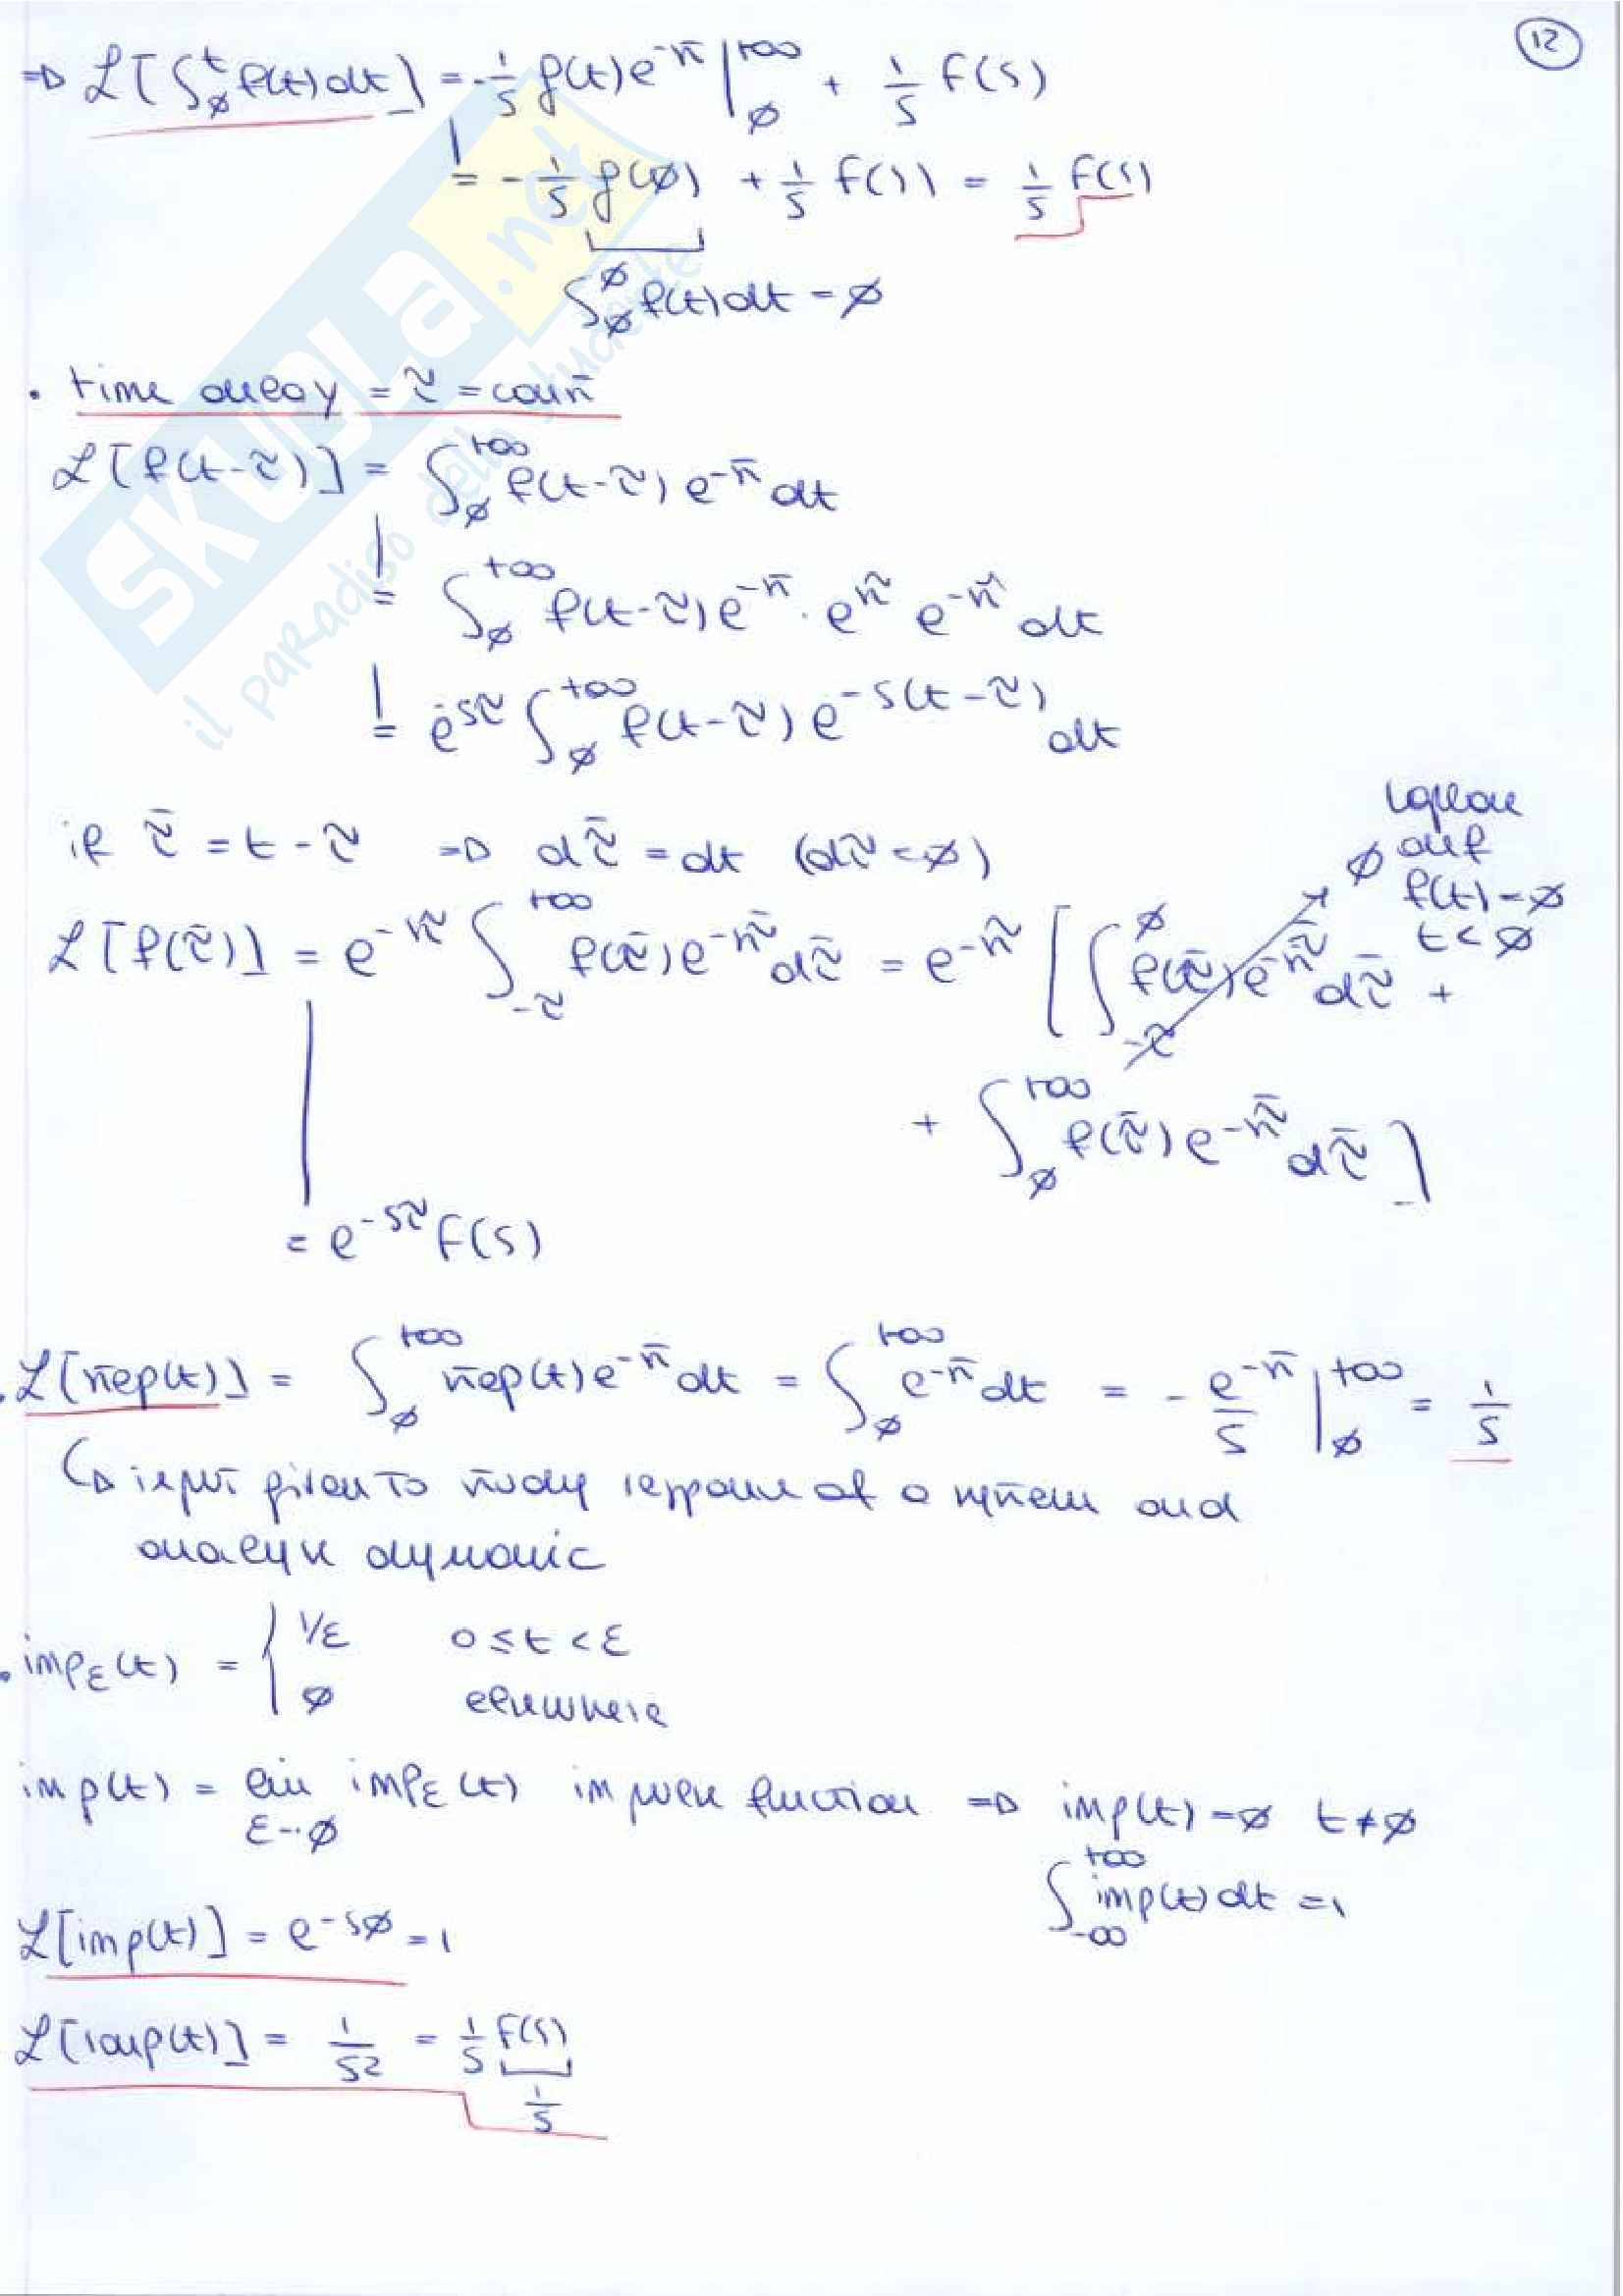 12
⇒ ℒ[∫₀ᵗ f(t)dt] = -1/s g(t)e^-st |₀^+∞ + 1/s F(s)
= -1/s g(∅) + 1/s F(s) = 1/s F(s)
∫_∅^∅ f(t)dt = ∅
· time delay = τ = const
ℒ[f(t-τ)] = ∫_∅^+∞ f(t-τ) e^-st dt
= ∫_∅^+∞ f(t-τ) e^-st · e^sτ e^-sτ dt
= e^-sτ ∫_∅^+∞ f(t-τ) e^-s(t-τ) dt
if τ̄ = t - τ ⇒ dτ̄ = dt (dτ = ∅)
∅ def f(t) = ∅ t < ∅
ℒ[f(τ̄)] = e^-sτ ∫_-τ^+∞ f(τ̄) e^-sτ̄ dτ̄ = e^-sτ [ ∫_-τ^∅ f(τ̄) e^-sτ̄ dτ̄ +
+ ∫_∅^+∞ f(τ̄) e^-sτ̄ dτ̄ ]
= e^-sτ F(s)
· ℒ[step(t)] = ∫_∅^+∞ step(t) e^-st dt = ∫_∅^+∞ e^-st dt = - e^-st/s |_∅^+∞ = 1/s
↳ input given to study response of a system and
analyse dynamic
· imp_ε(t) = { 1/ε 0 ≤ t < ε
∅ elsewhere
imp(t) = lim ε→∅ imp_ε(t) impulse function ⇒ imp(t) = ∅ t ≠ ∅
∫_-∞^+∞ imp(t) dt = 1
ℒ[imp(t)] = e^-s∅ = 1
ℒ[ramp(t)] = 1/s² = 1/s F(s)
1/s
SKUOLA.net
il paradiso dello studente